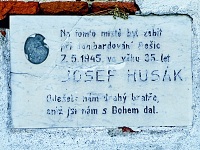 Na tomto místě byl zabit
při bombardování Pešic
7. 5. 1945. ve věku 35. let
JOSEF HUSÁK
Odešels nám drahý bratře,
aniž jsi nám s Bohem dal.